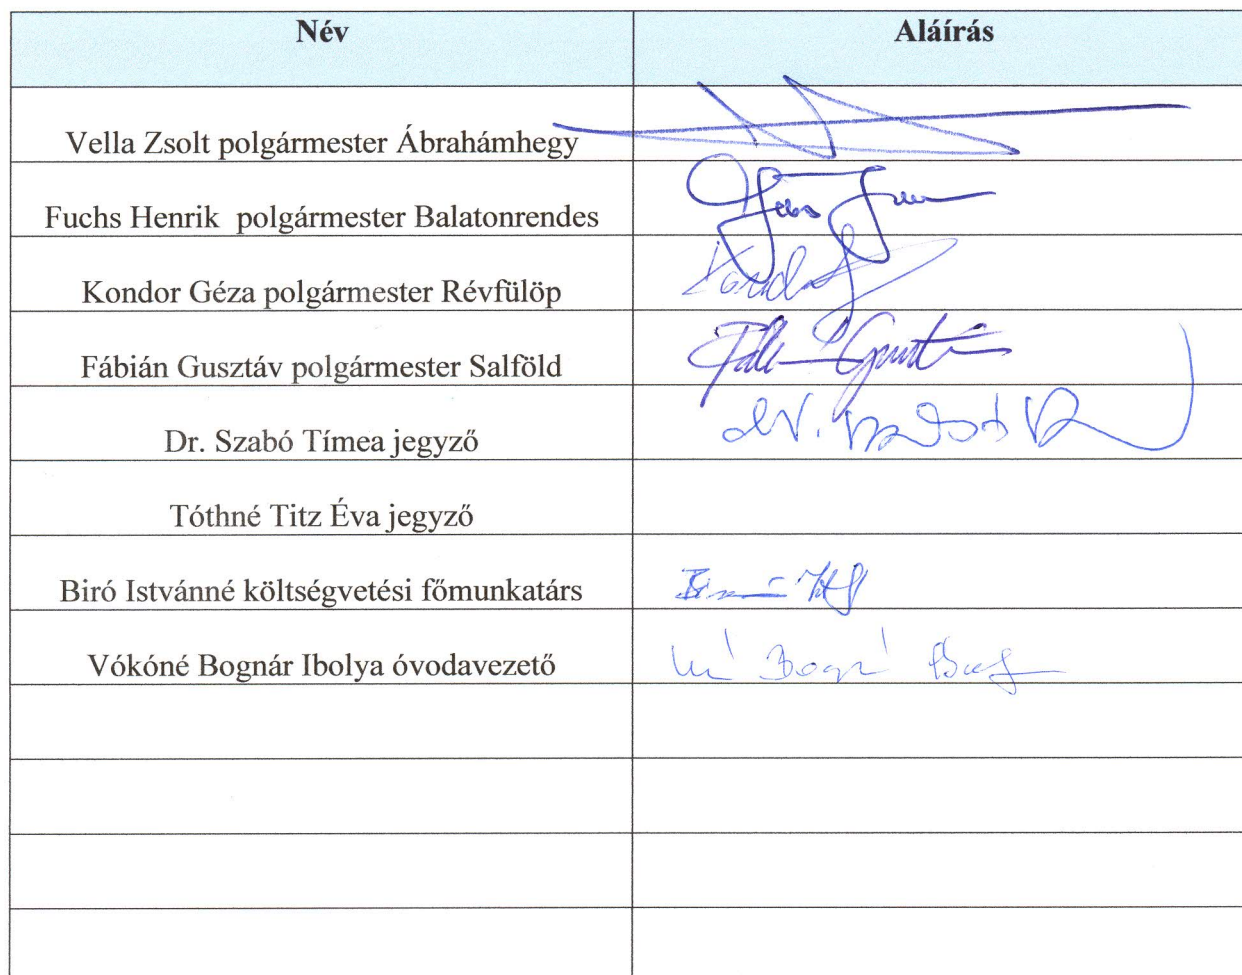 Név Aláírás
Vella Zsolt polgármester Ábrahámhegy
Fuchs Henrik polgármester Balatonrendes
Kondor Géza polgármester Révfülöp
Fábián Gusztáv polgármester Salföld
Dr. Szabó Tímea jegyző dr.
Tóthné Titz Éva jegyző
Biró Istvánné költségvetési főmunkatárs
Vókóné Bognár Ibolya óvodavezető